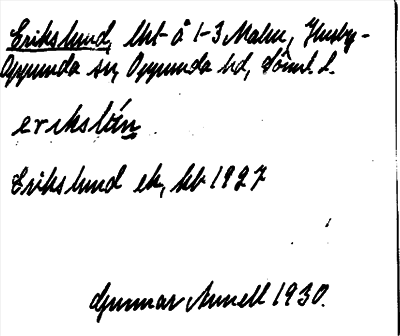 Erikslund, lht å 1-3 Malm, Husby-
Oppunda sn, Oppunda hd, Söml. l.
erikslún
Erikslund ek, kb 1927
Gunnar Annell 1930.